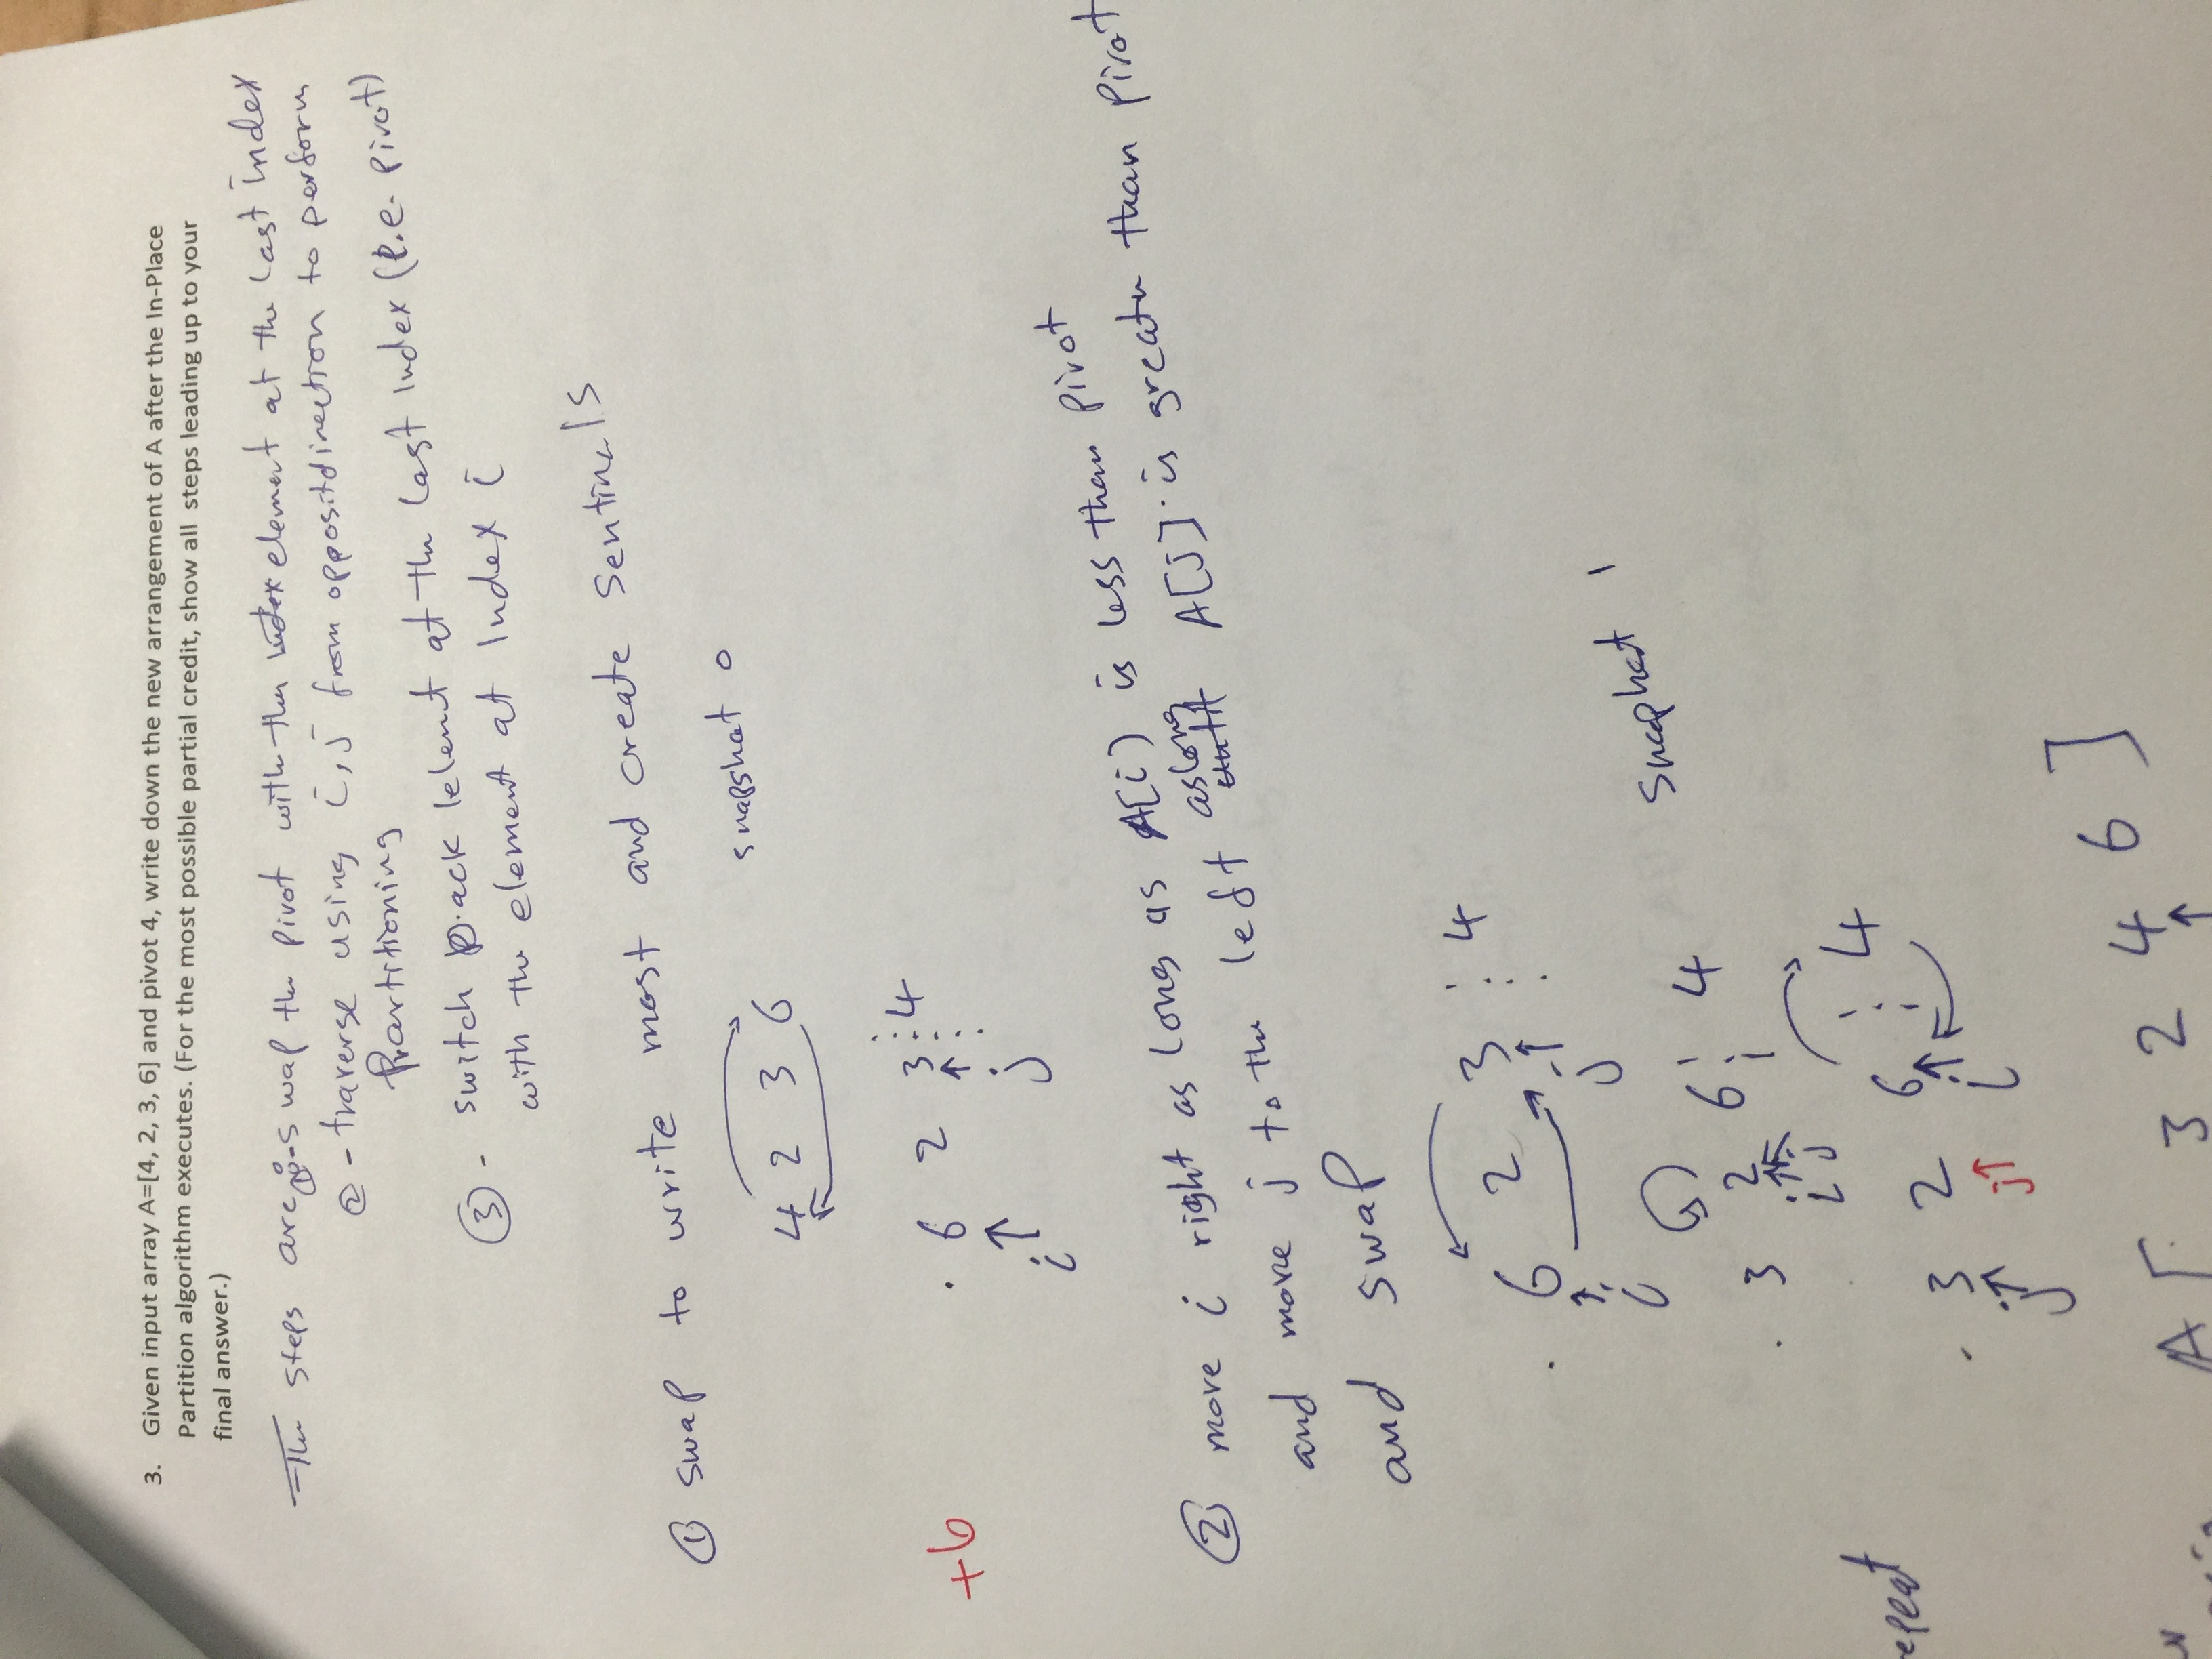 3. Given input array A=[4, 2, 3, 6] and pivot 4, write down the new arrangement of A after the In-Place
Partition algorithm executes. (For the most possible partial credit, show all steps leading up to your
final answer.)
The steps are ①- swap the pivot with the element at the last index
② - traverse using i, j from opposit direction to perform
Partitioning
③ - switch back lelemt at the last Index (i.e. pivot)
with the element at Index i
① swap to write most and create Sentinals
snapshot 0
4 2 3 6
6 2 3 4
+6
i j
② move i right as long as A[i) is less than pivot
and move j to the left as long A[j] is greater than pivot
and swap
6 2 3 4
i j
Snaphot 1
3 2 6 4
i j
epeat
3 2 6 4
j j i
A [ 3 2 4 6 ]